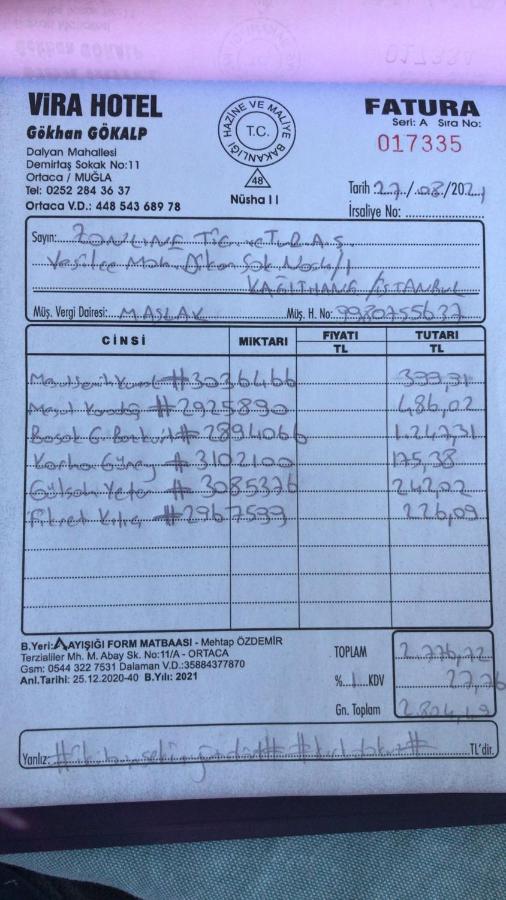 ViRA HOTEL
Gökhan GÖKALP
Dalyan Mahallesi
Demirtaş Sokak No:11
Ortaca / MUĞLA
Tel: 0252 284 36 37
Ortaca V.D.: 448 543 689 78
HAZİNE VE MALİYE BAKANLIĞI
T.C.
48
Nüsha II
FATURA
Seri: A Sıra No:
017335
Tarih :27/08/2021
İrsaliye No:
Sayın: ZONLINE TİC ve TUR A.Ş.
KAĞITHANE /İSTANBUL
Müş. Vergi Dairesi: MASLAK Müş. H. No: 9980755637
CİNSİ MİKTARI FİYATI TL TUTARI TL
#3036466 399,91
#2925890 486,02
#2894066 1.247,31
#3102100 175,38
Gülşah Yeter #3085376 242,02
Fikret Kılıç #2967599 226,09
B.Yeri: AAYIŞIĞI FORM MATBAASI - Mehtap ÖZDEMİR
Terzialiler Mh. M. Abay Sk. No:11/A - ORTACA
Gsm: 0544 322 7531 Dalaman V.D.:35884377870
Anl.Tarihi: 25.12.2020-40 B.Yılı: 2021
TOPLAM 2.776,72
% 1 KDV 27,76
Gn. Toplam 2.804,49
Yanlız: TL'dir.